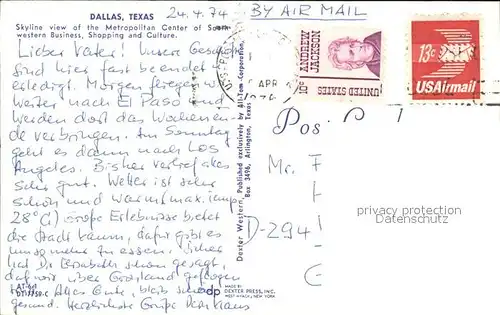 DALLAS, TEXAS
24.4.74
BY AIR MAIL
Skyline view of the Metropolitan Center of South-
western Business, Shopping and Culture.
Lieber Vater! Unsere Geschäfte
sind hier fast beendet
erledigt. Morgen fliegen wir
weiter nach El Paso und
werden dort das Wochenen-
de verbringen. Am Sonntag
geht es dann nach Los
Angeles. Bisher verlief alles
sehr gut. Wetter ist sehr
schön und warm (maxi.
28°C). Große Erlebnisse bietet
die Stadt kaum, dafür gibt es
umso mehr zu essen. Sicher
hat Dir Elisabeth schon gesagt,
daß wir über Grönland geflogen
Alles Gute, bleib schön
gesund. Herzlichste Grüße Dein Klaus
AT-64
DT-7759-C
Dexter Western, Published exclusively by All-Tom Corporation,
Box 3496, Arlington, Texas
dp
MADE BY
DEXTER PRESS, INC.
WEST NYACK, NEW YORK
APR
ANDREW
JACKSON
10c
UNITED STATES
13c
USAirmail
Pos
Mr. F
H
D-294
G
privacy protection
Datenschutz